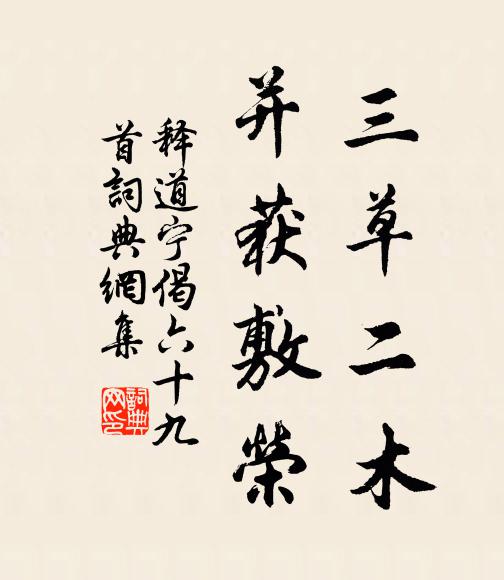 三草二木
并获敷榮
释道宁偈六十九
首詞典網集
詞典
网印